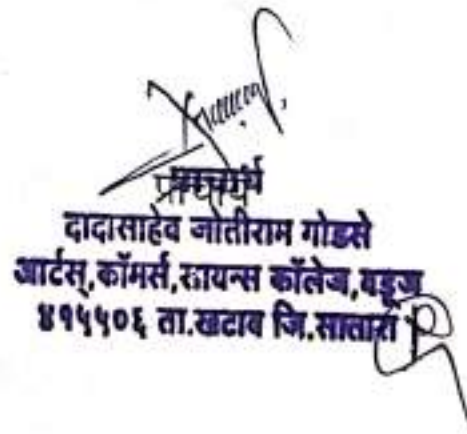 प्राचार्य
दादासाहेब जोतीराम गोडसे
आर्टस्,कॉमर्स,सायन्स कॉलेज,वडूज
४१५५०६ ता.खटाव जि.सातारा